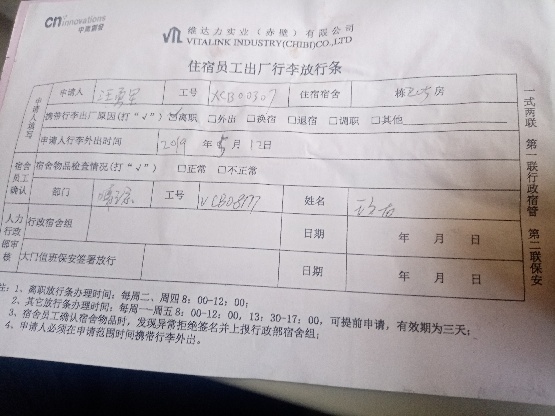 cn innovations
中南创发
维达力实业（赤壁）有限公司
VITALINK INDUSTRY(CHIBI)CO.,LTD
住宿员工出厂行李放行条
申请人填写
申请人 汪勇军 工号 住宿宿舍 栋 房
携带行李出厂原因(打“√”) ☑离职 □外出 □换宿 □退宿 □调职 □其他
申请人行李外出时间 2019 年 5 月 12 日
宿舍员工确认
宿舍物品检查情况(打“√”) □正常 □不正常
部门 工号 VCB08177 姓名
人力行政部审核
行政宿舍组 日期 年 月 日
大门值班保安签署放行 日期 年 月 日
一式两联 第一联行政宿管 第二联保安
注：1、离职放行条办理时间：每周二、周四8：00-12：00；
2、其它放行条办理时间：每周一—周五8：00-12：00，13：30-17：00，可提前申请，有效期为三天；
3、宿舍员工确认宿舍物品时，发现异常拒绝签名并上报行政部宿舍组；
4、申请人必须在申请范围时间携带行李外出。